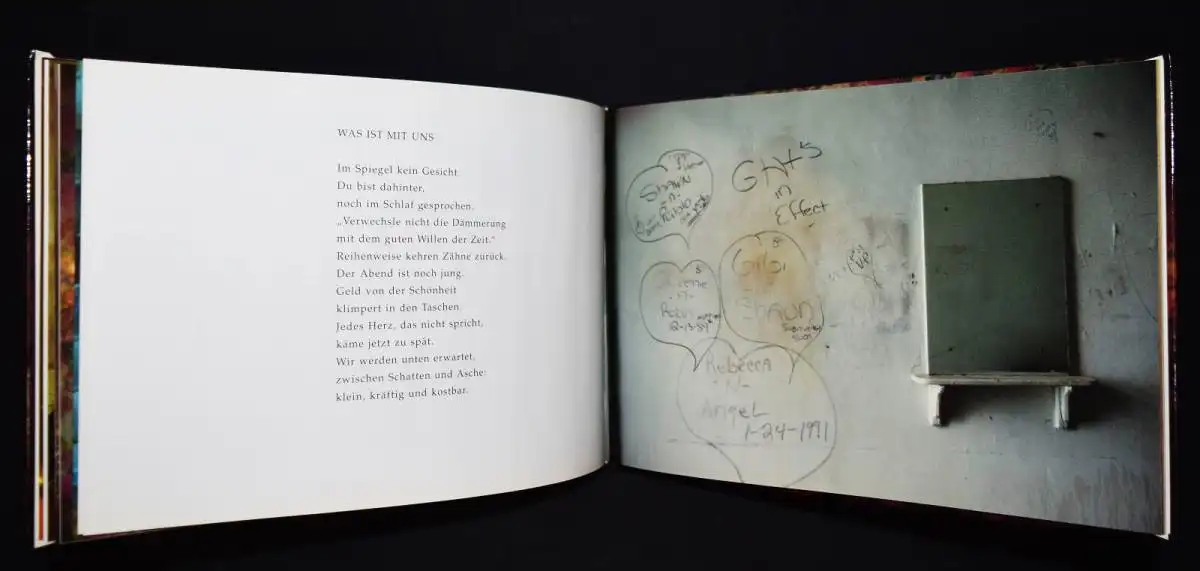 WAS IST MIT UNS
Im Spiegel kein Gesicht.
Du bist dahinter,
noch im Schlaf gesprochen.
„Verwechsle nicht die Dämmerung
mit dem guten Willen der Zeit.“
Reihenweise kehren Zähne zurück.
Der Abend ist noch jung.
Geld von der Schönheit
klimpert in den Taschen.
Jedes Herz, das nicht spricht,
käme jetzt zu spät.
Wir werden unten erwartet,
zwischen Schatten und Asche:
klein, kräftig und kostbar.
SHAWN
-n-
in
Effect
GiGi
SHAUN
Robin
12-13-89
Rebecca
-n-
Angel
1-24-1991